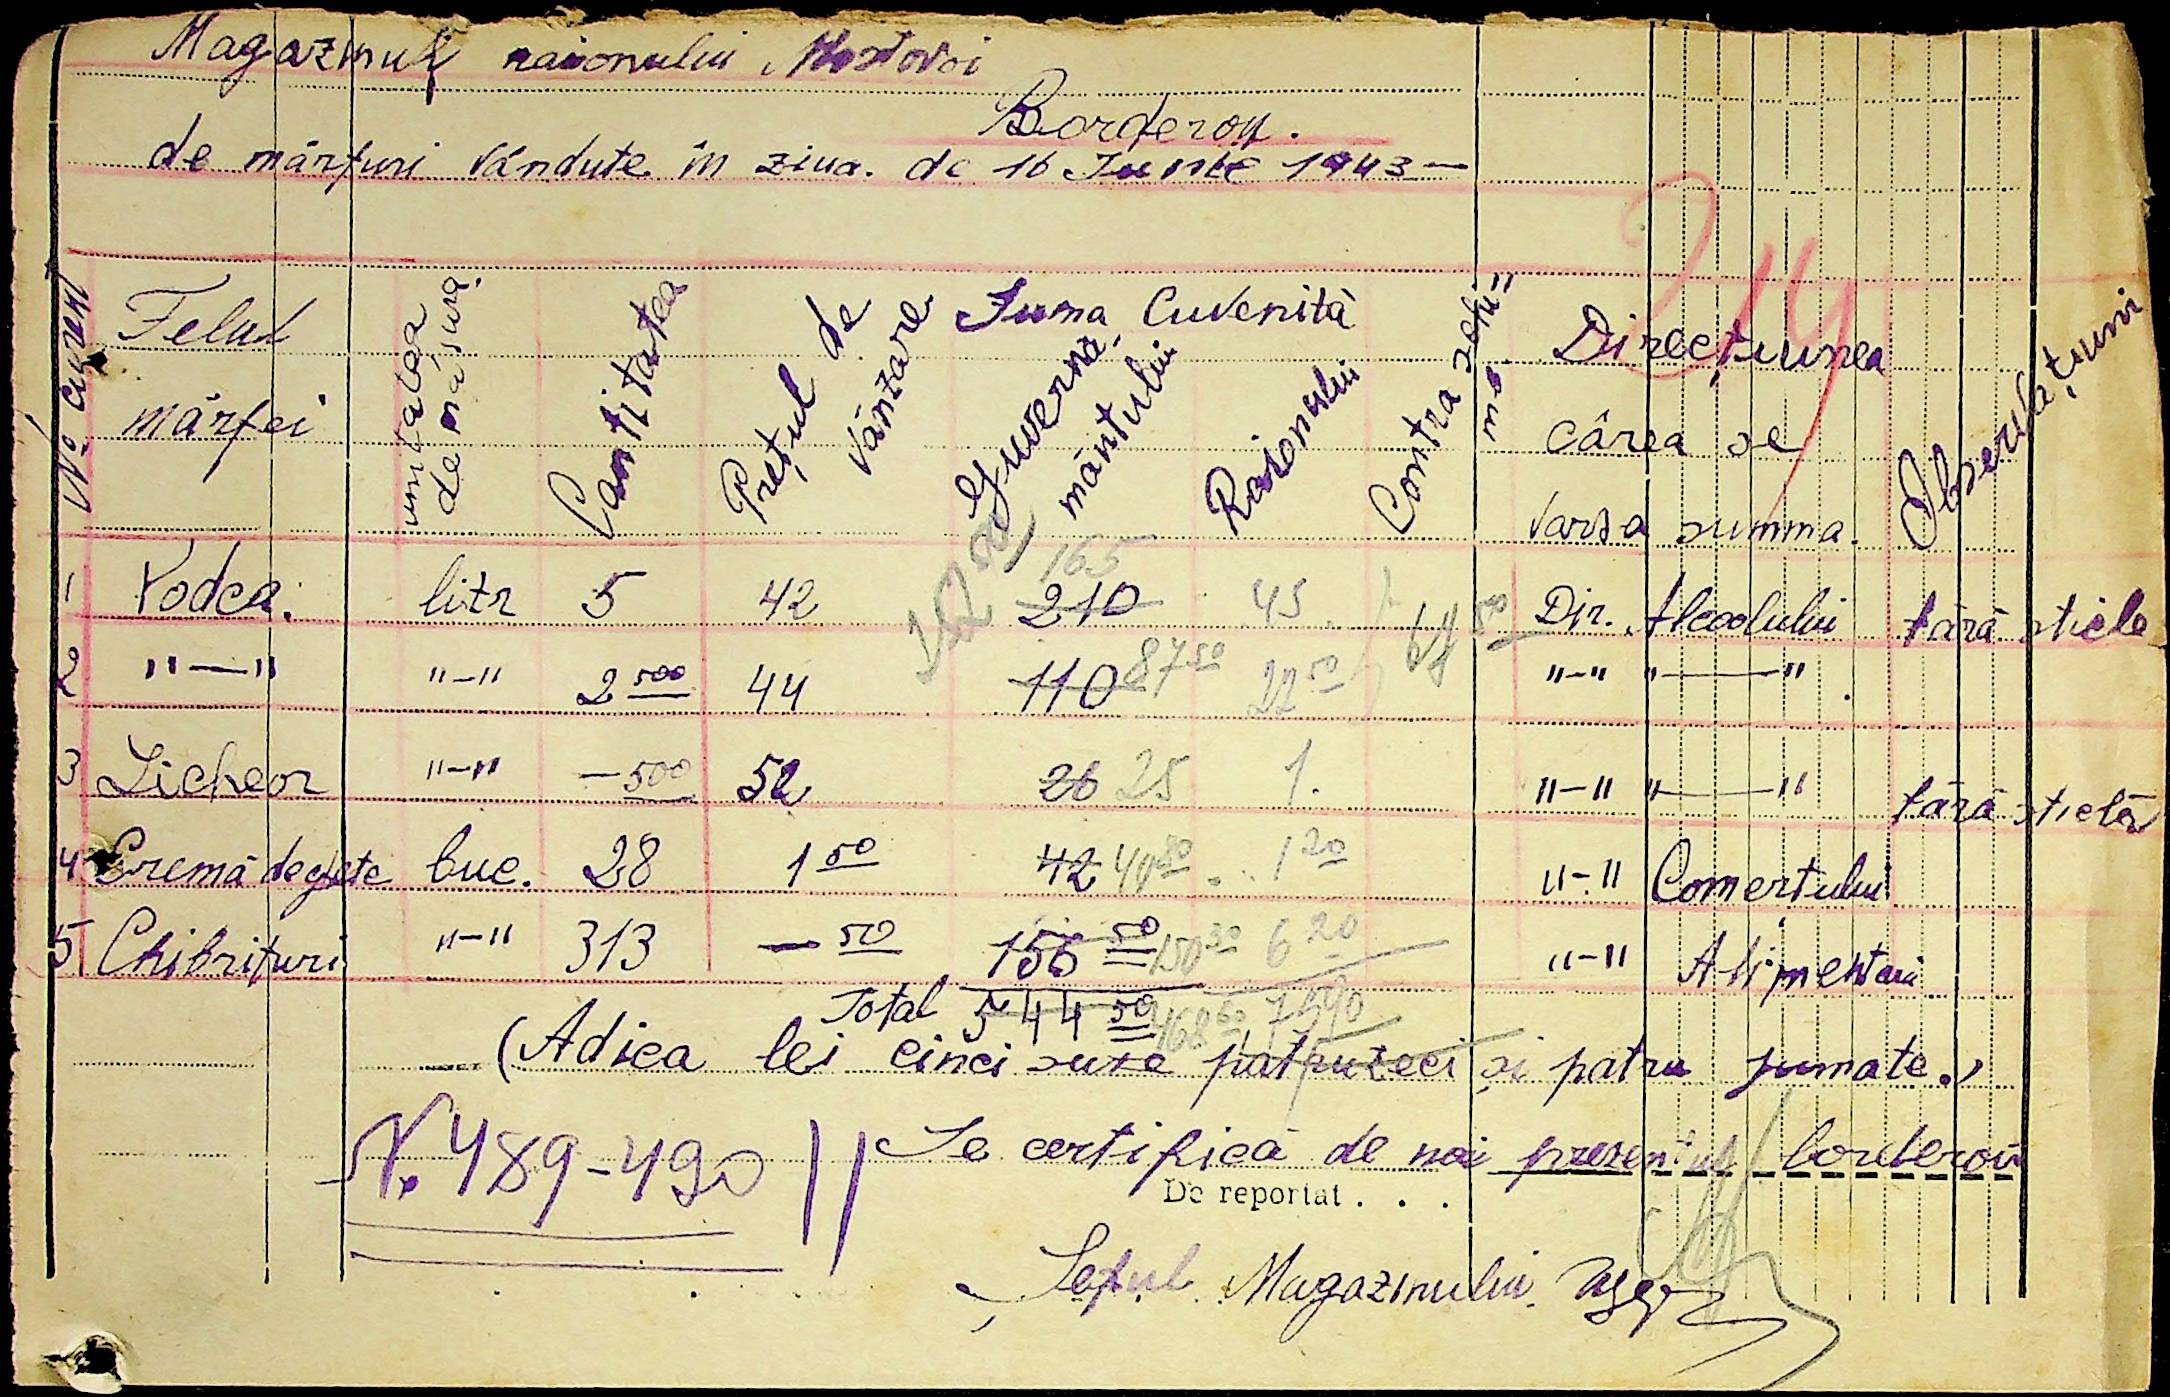 Magazinul raionului Mostovoi
Borderou.
de mărfuri vândute în ziua de 16 Iunie 1943 —
219
No curent
Felul mărfei
unitatea de măsură
Cantitatea
Prețul de vânzare
Suma Cuvenită
Guvernământului
Raionului
Contra schimb
Direcțiunea cărea se varsa summa.
Observațiuni
1 Vodca. litr 5 42 252 50 210 165 45 67 50 Dir. Alcoolului fără sticle
2 "—" "—" 2 500 44 110 87 50 22 50 "—" "—"
3 Licheor "—" — 500 52 26 25 1. "—" "—" fără sticlă
4 Cremă de ghete buc. 28 1 50 42 40 80 1 20 "—" Comerțului
5 Chibrituri "—" 313 — 50 156 50 150 30 6 20 "—" Alimentari
Total 544 50 468 60 75 90
(Adica lei cinci sute patruzeci și patru jumate.)
N. 489-490 Se certifică de noi prezentul borderou
De reportat . . .
Șeful Magazinului